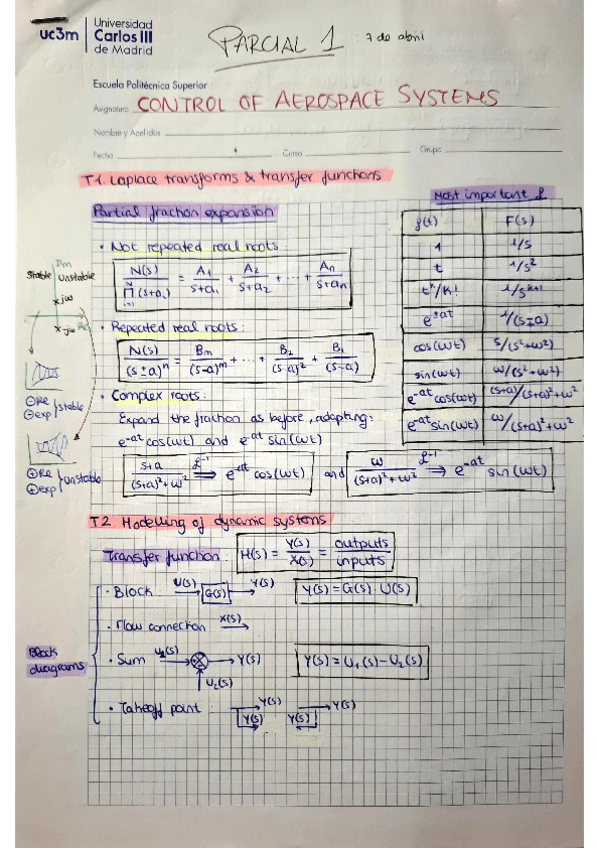 uc3m | Universidad Carlos III de Madrid
PARCIAL 1 : 7 de abril
Escuela Politécnica Superior
Asignatura CONTROL OF AEROSPACE SYSTEMS
Nombre y Apellidos
Fecha Curso Grupo
T1. Laplace transforms & transfer functions
Partial fraction expansion
· Not repeated real roots:
N(s) / ∏(s+a_i) = A1/(s+a1) + A2/(s+a2) + ... + An/(s+an)
· Repeated real roots:
N(s)/(s±a)^n = Bm/(s-a)^m + ... + B2/(s-a)² + B1/(s-a)
· Complex roots:
Expand the fraction as before, adapting:
e^-at cos(ωt) and e^-at sin(ωt)
(s+a)/((s+a)²+ω²) ℒ⁻¹⇒ e^-at cos(ωt) and ω/((s+a)²+ω²) ℒ⁻¹⇒ e^-at sin(ωt)
Most important ℒ
f(t) F(s)
1 1/s
t 1/s²
t^k/k! 1/s^k+1
e^±at 1/(s∓a)
cos(ωt) s/(s²+ω²)
sin(ωt) ω/(s²+ω²)
e^-at cos(ωt) (s+a)/(s+a)²+ω²
e^-at sin(ωt) ω/(s+a)²+ω²
Im
Stable Unstable
x jω
x -jω Re
⊖Re
⊖exp
stable
⊕Re
⊕exp
unstable
T2. Modelling of dynamic systems
Transfer function: H(s) = Y(s)/X(s) = outputs/inputs
Block diagrams
· Block U(s) → G(s) → Y(s) Y(s) = G(s) · U(s)
· Flow connection X(s) →
· Sum U1(s) → ⊗ → Y(s) Y(s) = U1(s) - U2(s)
U2(s)
· Takeoff point: Y(s) Y(s) Y(s) Y(s)